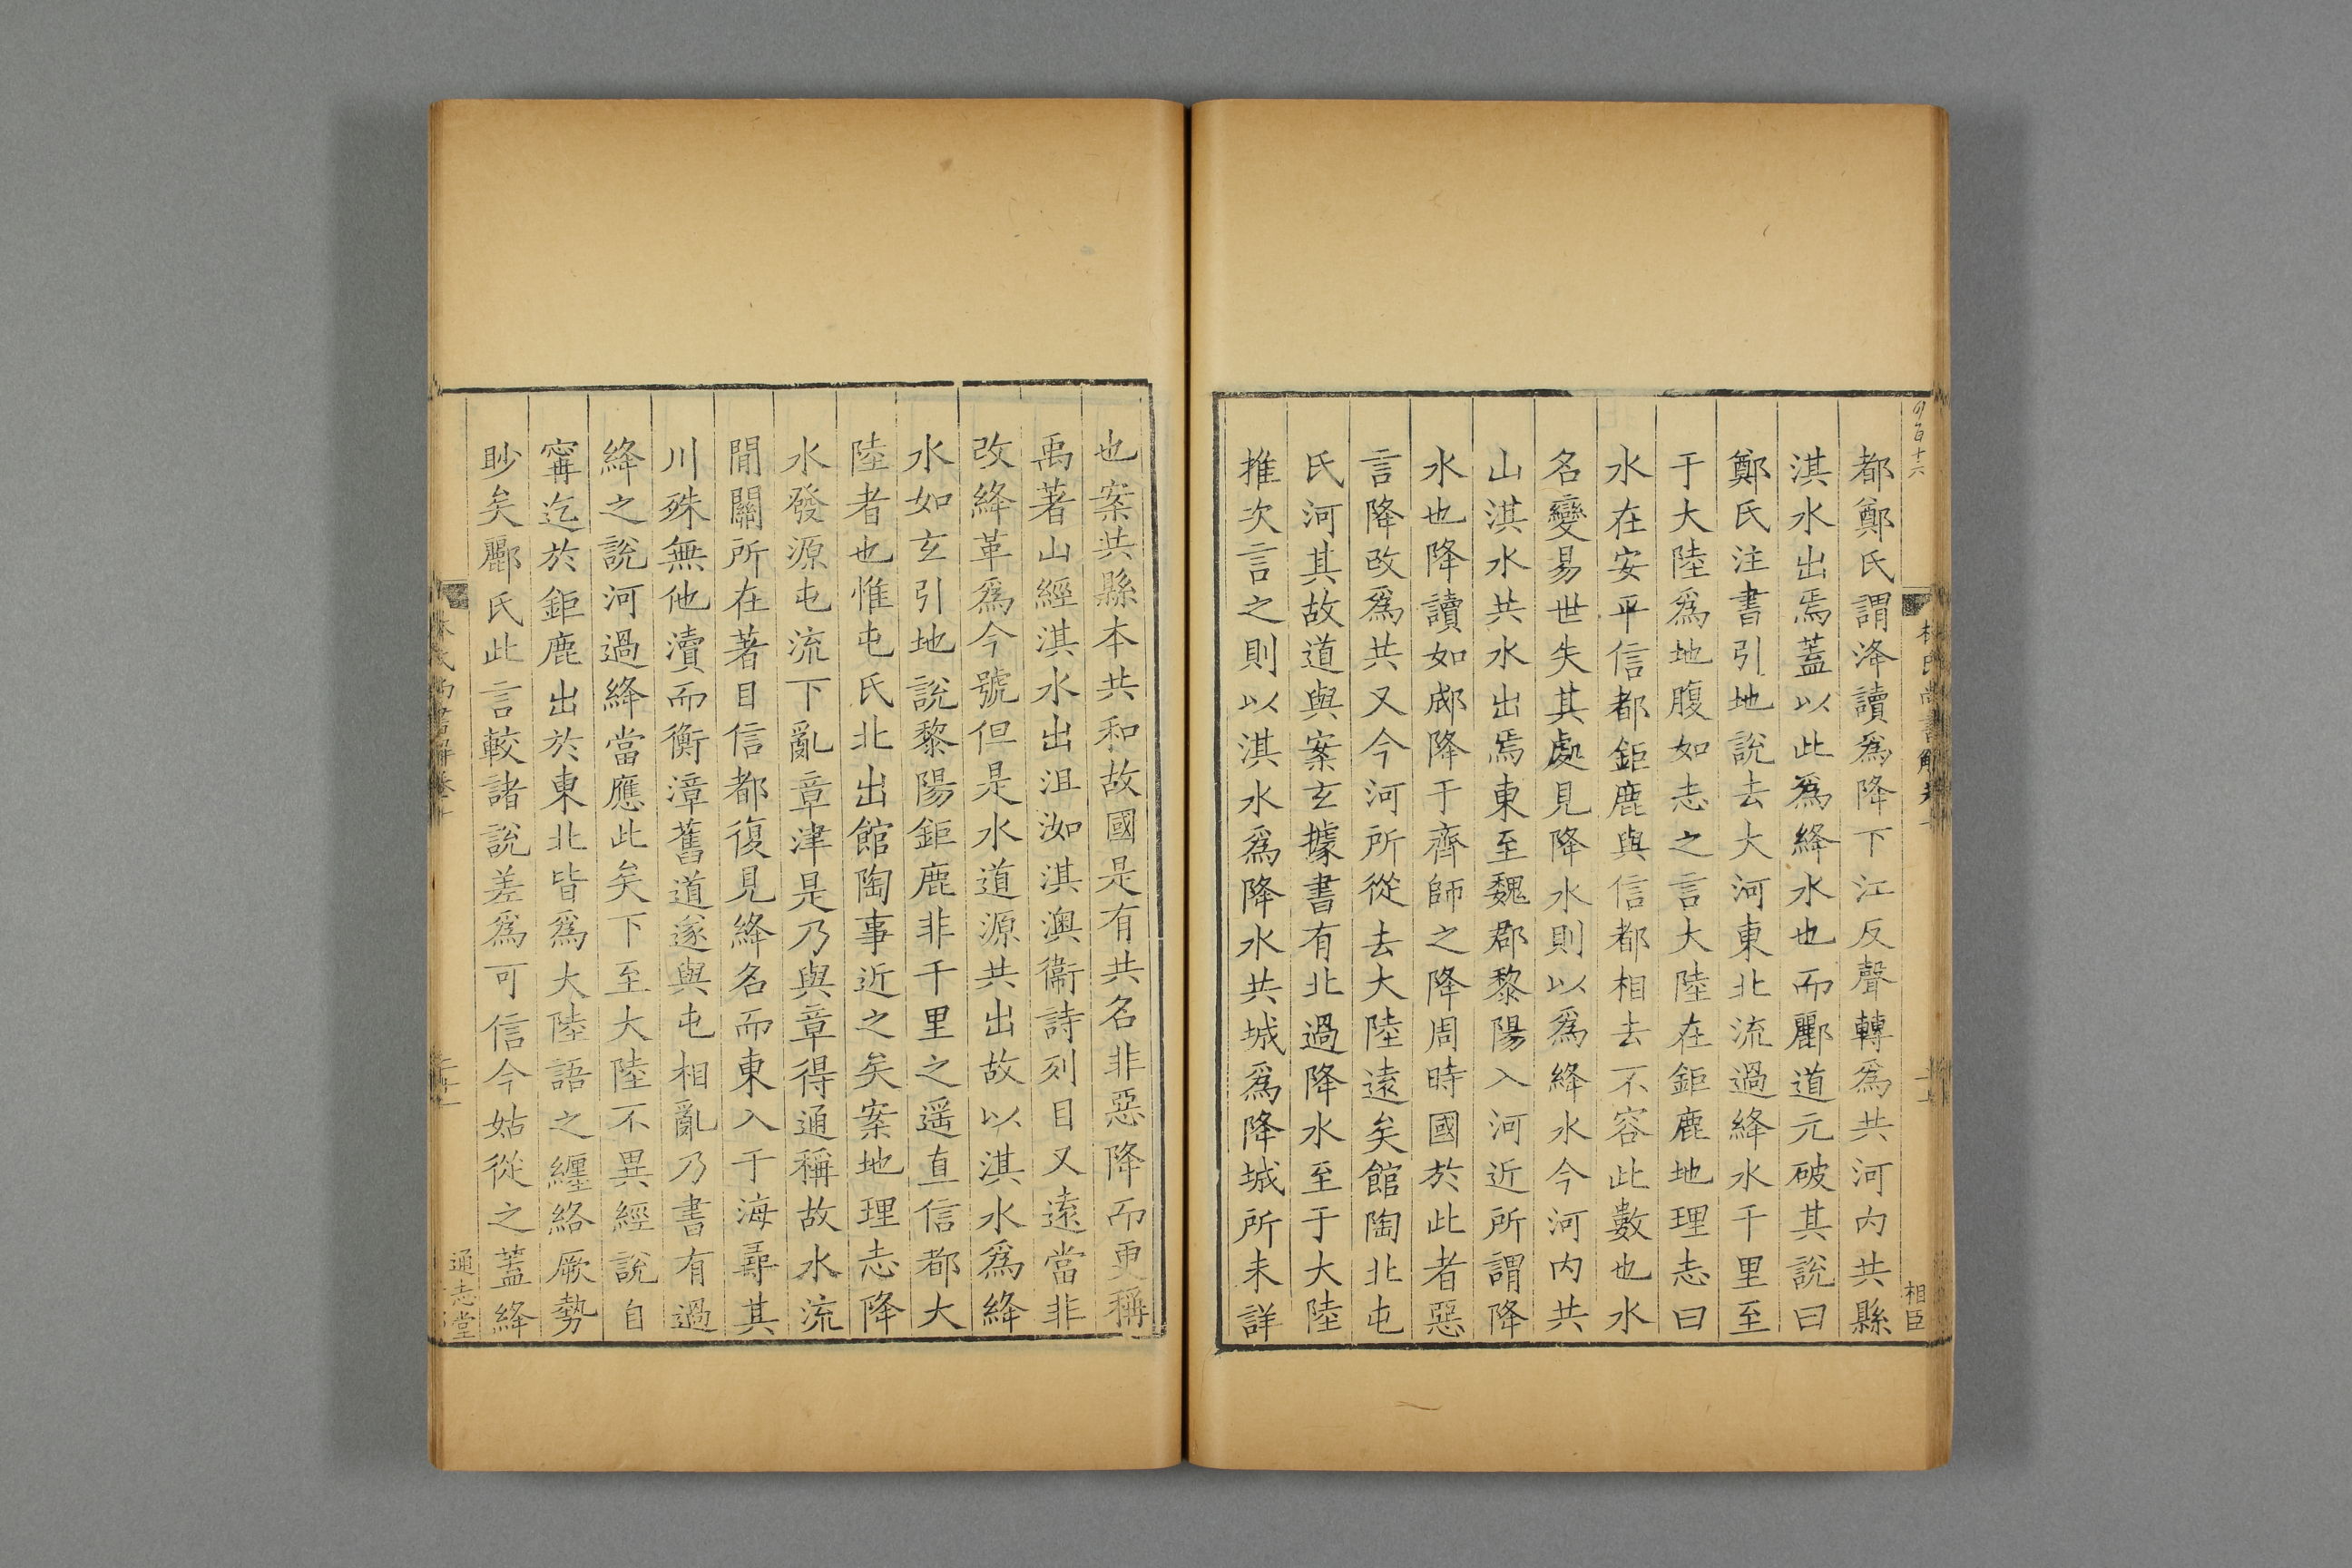 都鄭氏謂洚讀爲降下江反聲轉爲共河内共縣
淇水出焉蓋以此爲絳水也而酈道元破其說曰
鄭氏注書引地說去大河東北流過絳水千里至
于大陸爲地腹如志之言大陸在鉅鹿地理志曰
水在安平信都鉅鹿與信都相去不容此數也水
名變易世失其處見降水則以爲絳水今河内共
山淇水共水出焉東至魏郡黎陽入河近所謂降
水也降讀如郕降于齊師之降周時國於此者惡
言降改爲共又今河所從去大陸遠矣館陶北屯
氏河其故道與案玄據書有北過降水至于大陸
推次言之則以淇水爲降水共城爲降城所未詳
也案共縣本共和故國是有共名非惡降而更稱
禹著山經淇水出沮洳淇澳衞詩列目又遠當非
改絳革爲今號但是水道源共出故以淇水爲絳
水如玄引地說黎陽鉅鹿非千里之遥直信都大
陸者也惟屯氏北出館陶事近之矣案地理志降
水發源屯流下亂章津是乃與章得通稱故水流
閒關所在著目信都復見絳名而東入于海尋其
川殊無他瀆而衡漳舊道遂與屯相亂乃書有過
絳之說河過絳當應此矣下至大陸不異經說自
甯迄於鉅鹿出於東北皆爲大陸語之纏絡厥勢
眇矣酈氏此言較諸說差爲可信今姑從之蓋絳
相臣
通志堂